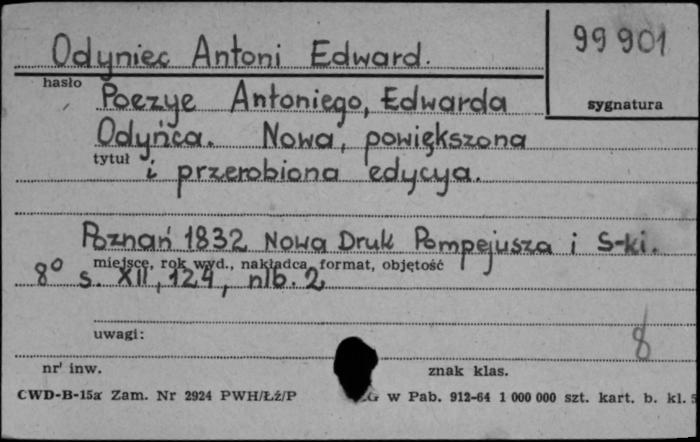 Odyniec Antoni Edward.
99 901
hasło
sygnatura
Poezye Antoniego, Edwarda
Odyńca. Nowa, powiększona
tytuł
i przerobiona edycya.
Poznań 1832 Nowa Druk Pompejusza i S-ki.
miejsce, rok wyd., nakładca, format, objętość
8° s. XII, 124, nlb. 2
uwagi:
8
nr inw.
znak klas.
CWD-B-15a Zam. Nr 2924 PWH/Łź/P
w Pab. 912-64 1 000 000 szt. kart. b. kl. 5